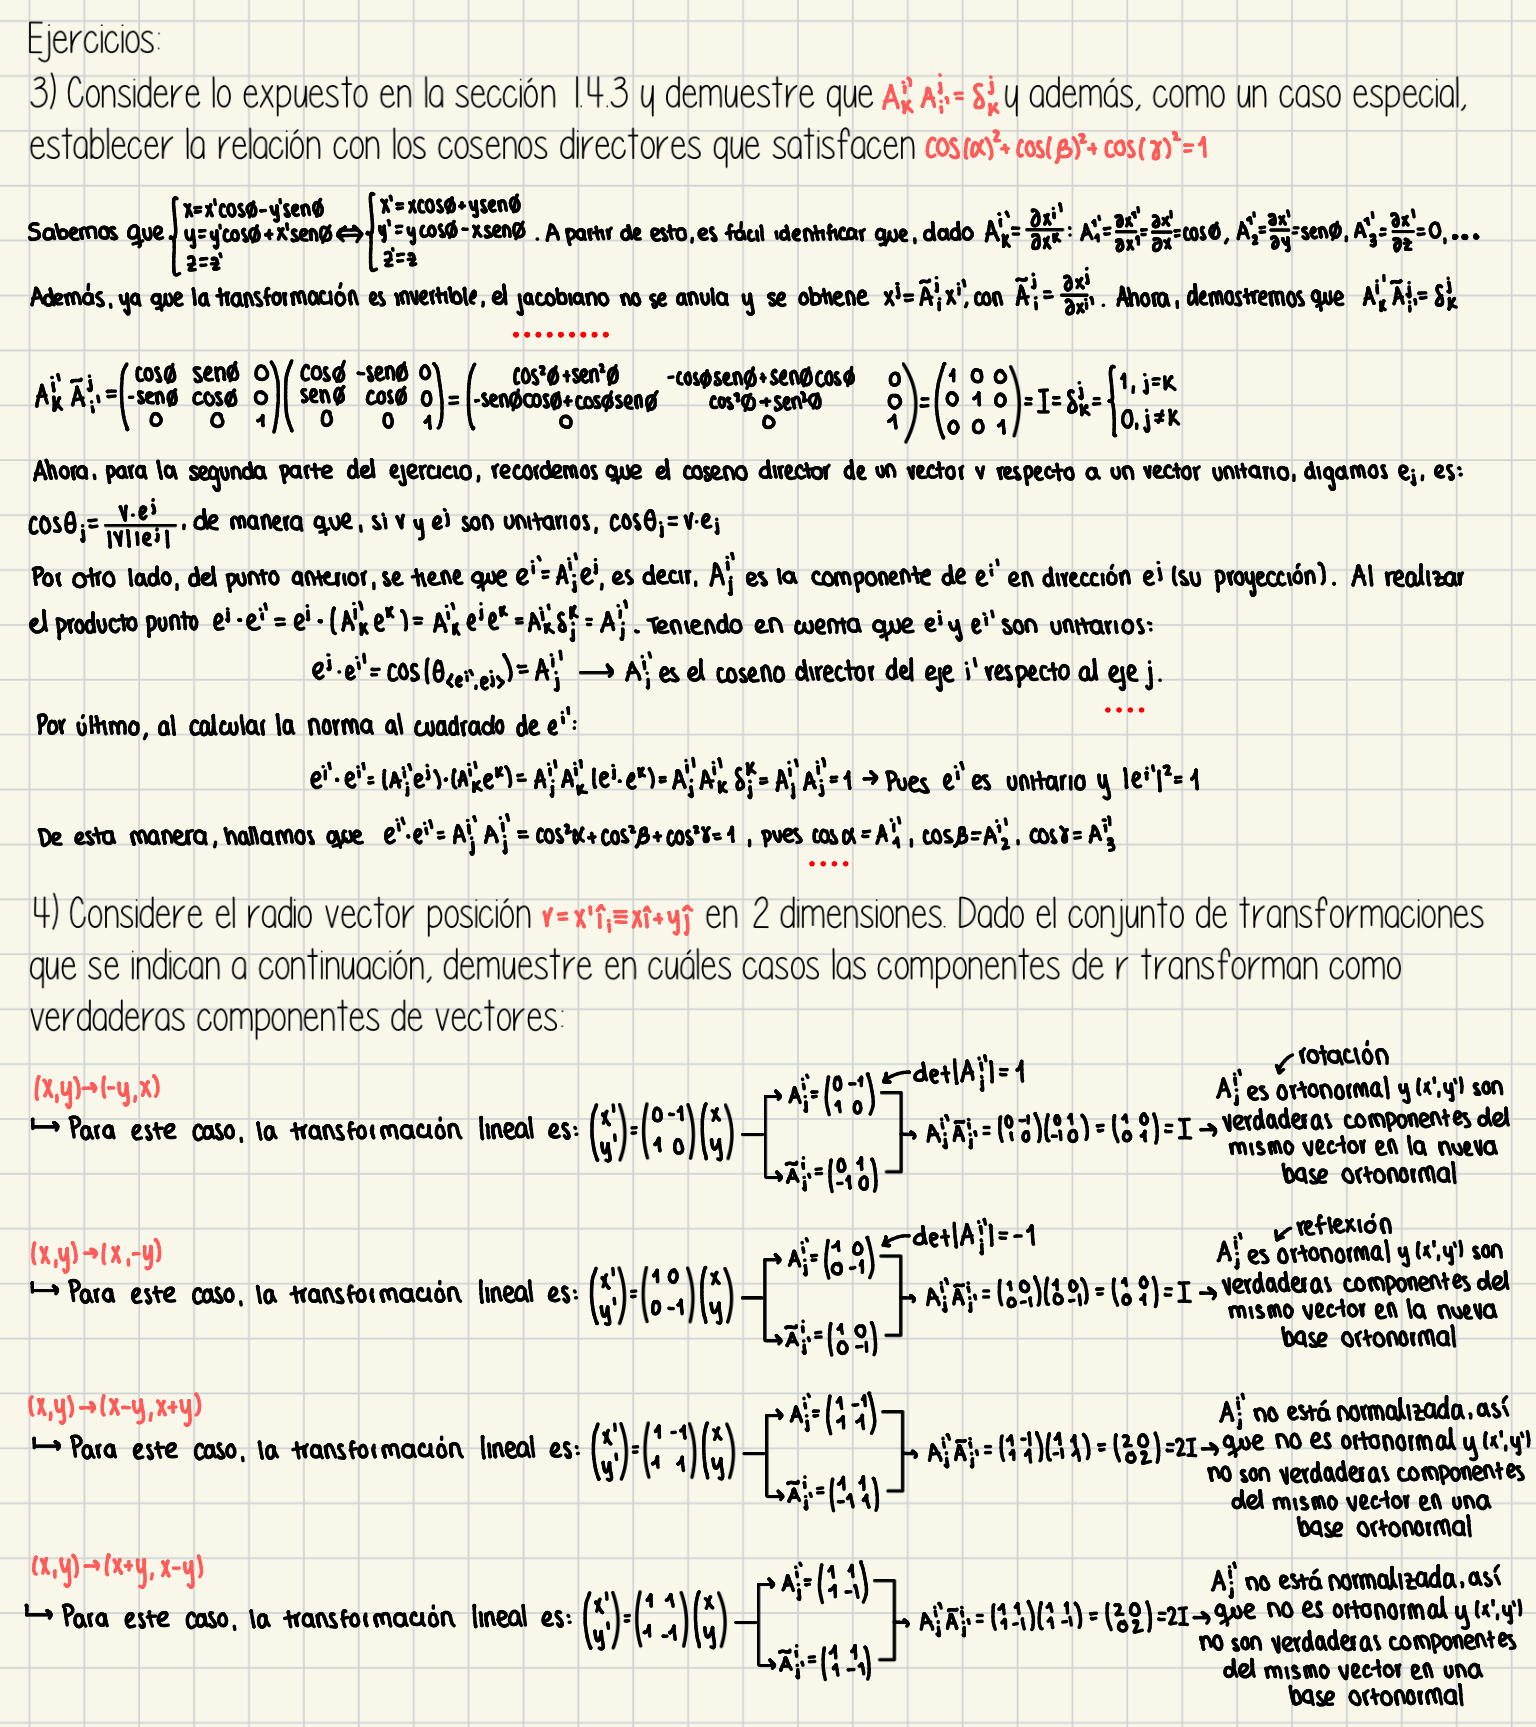 Ejercicios:
3) Considere lo expuesto en la sección 1.4.3 y demuestre que A^{i'}_k A^j_{i'} = δ^j_k y además, como un caso especial,
establecer la relación con los cosenos directores que satisfacen cos(α)²+cos(β)²+cos(γ)²=1
Sabemos que { x=x'cosø-y'senø ; y=y'cosø+x'senø ; z=z' ⇔ { x'=xcosø+ysenø ; y'=ycosø-xsenø ; z'=z . A partir de esto, es fácil identificar que, dado A^{i'}_k = ∂x^{i'}/∂x^k : A^{1'}_1 = ∂x^{1'}/∂x^1 = ∂x'/∂x = cosø, A^{1'}_2 = ∂x'/∂y = senø, A^{1'}_3 = ∂x'/∂z = 0, ...
Además, ya que la transformación es invertible, el jacobiano no se anula y se obtiene x^j = Ã^j_i x^{i'}, con Ã^j_i = ∂x^j/∂x^{i'}. Ahora, demostremos que A^{i'}_k Ã^j_{i'} = δ^j_k
A^{i'}_k Ã^j_{i'} = (cosø senø 0 ; -senø cosø 0 ; 0 0 1)(cosø -senø 0 ; senø cosø 0 ; 0 0 1) = (cos²ø+sen²ø -cosøsenø+senøcosø 0 ; -senøcosø+cosøsenø cos²ø+sen²ø 0 ; 0 0 1) = (1 0 0 ; 0 1 0 ; 0 0 1) = I = δ^j_k = { 1, j=k ; 0, j≠k
Ahora, para la segunda parte del ejercicio, recordemos que el coseno director de un vector v respecto a un vector unitario, digamos e_j, es:
cosθ_j = v·e^j/|v||e^j| , de manera que, si v y e^j son unitarios, cosθ_j = v·e_j
Por otro lado, del punto anterior, se tiene que e^{i'} = A^{i'}_j e^j, es decir, A^{i'}_j es la componente de e^{i'} en dirección e^j (su proyección). Al realizar
el producto punto e^j·e^{i'} = e^j·(A^{i'}_k e^k) = A^{i'}_k e^j e^k = A^{i'}_k δ^k_j = A^{i'}_j. Teniendo en cuenta que e^j y e^{i'} son unitarios:
e^j·e^{i'} = cos(θ_{<e^{i'},e^j>}) = A^{i'}_j ⟶ A^{i'}_j es el coseno director del eje i' respecto al eje j.
Por último, al calcular la norma al cuadrado de e^{i'}:
e^{i'}·e^{i'} = (A^{i'}_j e^j)·(A^{i'}_k e^k) = A^{i'}_j A^{i'}_k (e^j·e^k) = A^{i'}_j A^{i'}_k δ^k_j = A^{i'}_j A^{i'}_j = 1 → Pues e^{i'} es unitario y |e^{i'}|² = 1
De esta manera, hallamos que e^{i'}·e^{i'} = A^{i'}_j A^{i'}_j = cos²α+cos²β+cos²γ=1 , pues cosα = A^{i'}_1 , cosβ = A^{i'}_2 , cosγ = A^{i'}_3
4) Considere el radio vector posición r = x^i î_i ≡ xî+yĵ en 2 dimensiones. Dado el conjunto de transformaciones
que se indican a continuación, demuestre en cuáles casos las componentes de r transforman como
verdaderas componentes de vectores:
(x,y)→(-y,x)
↳ Para este caso, la transformación lineal es: (x' ; y') = (0 -1 ; 1 0)(x ; y)
→ A^{i'}_j = (0 -1 ; 1 0) ← det|A^{i'}_j| = 1
→ Ã^i_{j'} = (0 1 ; -1 0)
→ A^{i'}_j Ã^i_{j'} = (0 -1 ; 1 0)(0 1 ; -1 0) = (1 0 ; 0 1) = I →
rotación
A^{i'}_j es ortonormal y (x',y') son
verdaderas componentes del
mismo vector en la nueva
base ortonormal
(x,y)→(x,-y)
↳ Para este caso, la transformación lineal es: (x' ; y') = (1 0 ; 0 -1)(x ; y)
→ A^{i'}_j = (1 0 ; 0 -1) ← det|A^{i'}_j| = -1
→ Ã^i_{j'} = (1 0 ; 0 -1)
→ A^{i'}_j Ã^i_{j'} = (1 0 ; 0 -1)(1 0 ; 0 -1) = (1 0 ; 0 1) = I →
reflexión
A^{i'}_j es ortonormal y (x',y') son
verdaderas componentes del
mismo vector en la nueva
base ortonormal
(x,y)→(x-y,x+y)
↳ Para este caso, la transformación lineal es: (x' ; y') = (1 -1 ; 1 1)(x ; y)
→ A^{i'}_j = (1 -1 ; 1 1)
→ Ã^i_{j'} = (1 1 ; -1 1)
→ A^{i'}_j Ã^i_{j'} = (1 -1 ; 1 1)(1 1 ; -1 1) = (2 0 ; 0 2) = 2I →
A^{i'}_j no está normalizada, así
que no es ortonormal y (x',y')
no son verdaderas componentes
del mismo vector en una
base ortonormal
(x,y)→(x+y, x-y)
↳ Para este caso, la transformación lineal es: (x' ; y') = (1 1 ; 1 -1)(x ; y)
→ A^{i'}_j = (1 1 ; 1 -1)
→ Ã^i_{j'} = (1 1 ; 1 -1)
→ A^{i'}_j Ã^i_{j'} = (1 1 ; 1 -1)(1 1 ; 1 -1) = (2 0 ; 0 2) = 2I →
A^{i'}_j no está normalizada, así
que no es ortonormal y (x',y')
no son verdaderas componentes
del mismo vector en una
base ortonormal